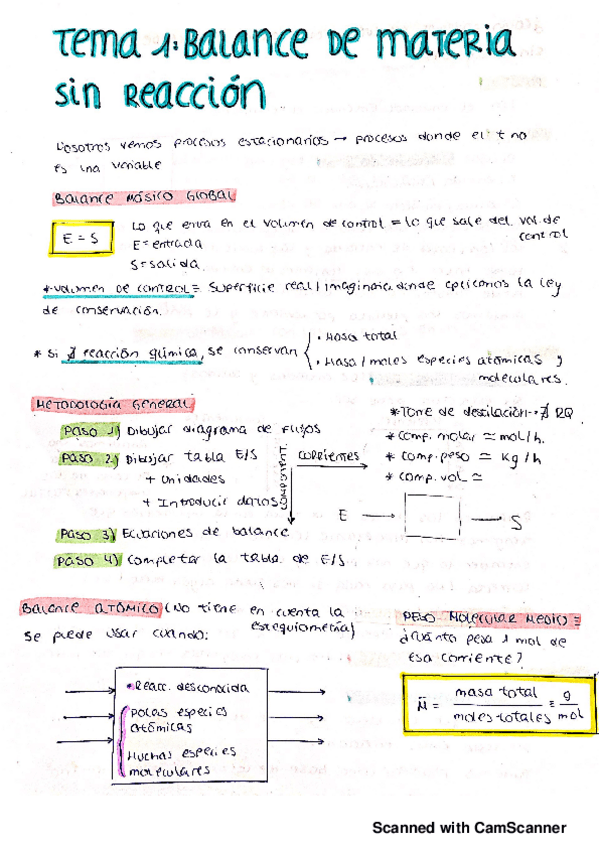 Tema 1: Balance de materia
sin Reacción
Nosotros vemos procesos estacionarios → procesos donde el t no
es una variable
Balance Másico Global
E = S
Lo que entra en el volumen de control = lo que sale del vol. de
control
E = entrada
S = salida.
*Volumen de control = superficie real/imaginaria donde aplicamos la ley
de conservación.
* Si ∄ reacción química, se conservan
• Masa total
• Masa/moles especies atómicas y
moleculares.
Metodología General
Paso 1) Dibujar diagrama de flujos
Paso 2) Dibujar tabla E/S
+ Unidades
+ Introducir datos
COMPONENT.
corrientes
Paso 3) Ecuaciones de balance
Paso 4) Completar la tabla de E/S
*Torre de destilación → ∄ RQ
*Comp. molar ≃ mol/h.
*Comp. peso ≃ Kg/h
*Comp. vol ≃
E
S
Balance Atómico (No tiene en cuenta la
estequiometría)
Se puede usar cuando:
• Reacc. desconocida
Pocas especies
atómicas
Muchas especies
moleculares
Peso Molecular Medio ≡
¿Cuánto pesa 1 mol de
esa corriente?
M̄ = masa total / moles totales ≡ g / mol
Scanned with CamScanner